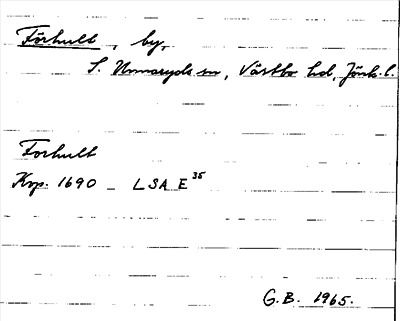 Förhult, by,
S. Unnaryds sn, Västbo hd, Jönk. l.
Forhult
Krp. 1690 _ LSA E 35
G.B. 1965.